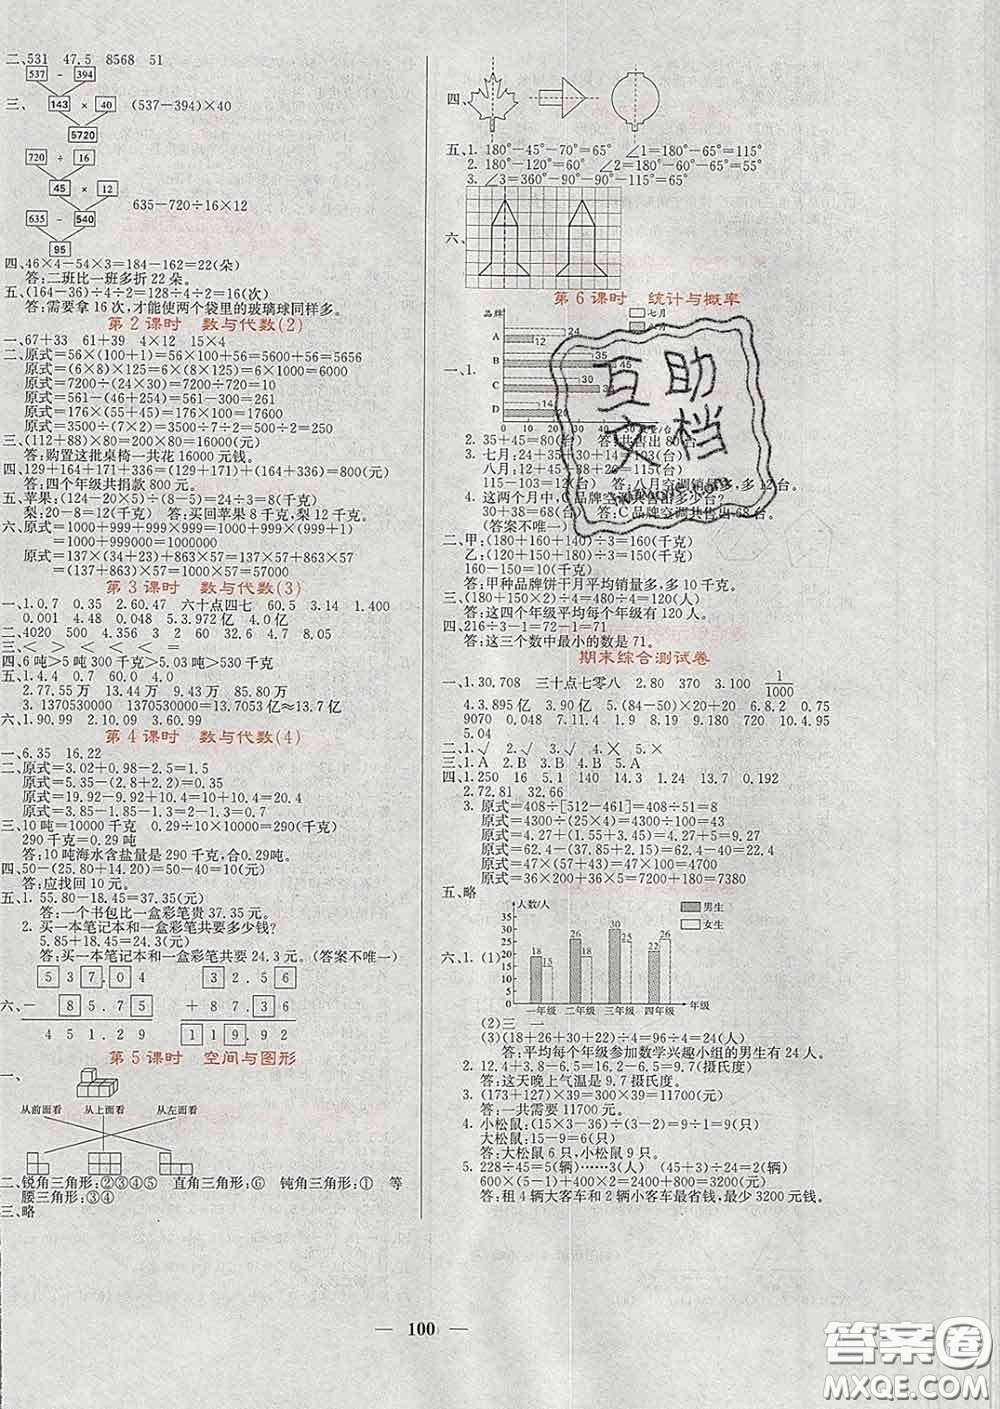 二、531 47.5 8568 51
537 - 394
三、 143 × 40 (537-394)×40
5720
720 ÷ 16
45 × 12
635-720÷16×12
635 - 540
95
四、46×4-54×3=184-162=22(朵)
答:二班比一班多折 22 朵。
五、(164-36)÷4÷2=128÷4÷2=16(次)
答:需要拿 16 次,才能使两个袋里的玻璃球同样多。
第 2 课时 数与代数(2)
一、67+33 61+39 4×12 15×4
二、原式=56×(100+1)=56×100+56=5600+56=5656
原式=(6×8)×125=6×(8×125)=6×1000=6000
原式=7200÷(24×30)=7200÷720=10
原式=561-(46+254)=561-300=261
原式=176×(55+45)=176×100=17600
原式=3500÷(7×2)=3500÷7÷2=500÷2=250
三、(112+88)×80=200×80=16000(元)
答:购置这批桌椅一共花 16000 元钱。
四、129+164+171+336=(129+171)+(164+336)=800(元)
答:四个年级共捐款 800 元。
五、苹果:(124-20×5)÷(8-5)=24÷3=8(千克)
梨:20-8=12(千克) 答:买回苹果 8 千克,梨 12 千克。
六、原式=1000+999+999×999=1000+999×(999+1)
=1000+999000=1000000
原式=137×(34+23)+863×57=137×57+863×57
=(137+863)×57=1000×57=57000
第 3 课时 数与代数(3)
一、1.0.7 0.35 2.60.47 六十点四七 60.5 3.14 1.400
0.001 4.48 0.048 5.3.972亿 4.0亿
二、4020 500 4.356 3 2 60 32.6 4.7 8.05
三、< > < < < =
四、6 吨>5 吨 300 千克>5.03 吨>530 千克
五、1.4.4 0.7 60.0 4.0
2.77.55 万 13.44 万 9.43 万 17.85 万
3.1370530000 1370530000=13.7053亿≈13.7亿
六、1.90.99 2.10.09 3.60.99
第 4 课时 数与代数(4)
一、6.35 16.22
二、原式=3.02+0.98-2.5=1.5
原式=5.35-(2.8+2.2)=0.35
原式=19.08-9.92+10.4=10+10.4=20.4
原式=3.85-1.85-1.3=2-1.3=0.7
三、10 吨=10000 千克 0.29÷10×10000=290(千克)
290千克=0.29 吨
答:10 吨海水含盐量是 290 千克,合0.29吨。
四、50-(25.80+14.20)=50-40=10(元)
答:应找回 10 元。
五、1. 55.80-18.45=37.35(元)
答:一个书包比一盒彩笔贵 37.35 元。
2. 买一本笔记本和一盒彩笔共要多少钱?
5.85+18.45=24.3(元)
答:买一本笔记本和一盒彩笔共要 24.3 元。(答案不唯一)
5 3 7 . 0 4 3 2 . 5 6
六、 - 8 5 . 7 5 + 8 7 . 3 6
4 5 1 . 2 9 1 1 9 . 9 2
第 5 课时 空间与图形
一、
从前面看 从上面看 从左面看
二、锐角三角形:②③④⑤ 直角三角形:⑥ 钝角三角形:① 等
腰三角形:③④
三、略
四、
五、1. 180°-45°-70°=65° ∠1=180°-65°=115°
2. 180°-120°=60° ∠2=180°-60°-65°=55°
3. ∠3=360°-90°-90°-115°=65°
六、
第 6 课时 统计与概率
品牌 七月
A 24 12
B 35 45
一、1. C 30
D 14 20
0 10 20 30 40
2. 35+45=80(台) 答:共售出 80 台。
3. 七月:24+35+30+14=103(台)
八月:12+45+
115-103=12(台) 答:八月空调销量多,多 12 台。
4. 这两个月中,C 品牌空调共售出多少台?
30+38=68(台) 答:C 品牌空调共售出 68 台。
(答案不唯一)
二、甲:(180+160+140)÷3=160(千克)
乙:(120+150+180)÷3=150(千克)
160-150=10(千克)
答:甲种品牌饼干月平均销量多,多 10 千克。
三、(150×2+180)÷4=480÷4=120(人)
答:这四个年级平均每个年级有 120 人。
四、216÷3-1=72-1=71
答:这三个数中最小的数是 71。
期末综合测试卷
一、1.30.708 三十点七零八 2.80 370 3.100 1/1000
4.3.895亿 3.90亿 5.(84-50)×20+20 6.8.2 0.75
9070 0.048 7.115 8.109 9.180 720 10.4.95
5.04
二、1.√ 2.√ 3.√ 4.× 5.×
三、1.A 2.B 3.B 4.B 5.A
四、1.250 16 5.1 140 14.3 1.24 13.7 0.192
2.72.81 32.66
3. 原式=408÷[512-461]=408÷51=8
原式=4300÷(25×4)=4300÷100=43
原式=4.27+(1.55+3.45)=4.27+5=9.27
原式=62.4-(37.85+2.15)=62.4-40=22.4
原式=47×(57+43)=47×100=4700
原式=36×200+36×5=7200+180=7380
五、略
人数/人 男生 女生
35 30 25 20 15 10 5 0
六、1. (1) 18 15 26 18 30 26 22 26
一年级 二年级 三年级 四年级 年级
(2)三 一
(3)(18+26+30+22)÷4=96÷4=24(人)
答:平均每个年级参加数学兴趣小组的男生有 24 人。
2. 12.4+3.8-6.5=16.2-6.5=9.7(摄氏度)
答:这天晚上气温是 9.7 摄氏度。
3. (173+127)×39=300×39=11700(元)
答:一共需要 11700 元。
4. 小松鼠:(15×3-36)÷(3-2)=9÷1=9(只)
大松鼠:15-9=6(只)
答:大松鼠 6 只,小松鼠 9 只。
5. 228÷45=5(辆)……3(人) (45+3)÷24=2(辆)
600×(5-1)+400×2=2400+800=3200(元)
答:租 4 辆大客车和 2 辆小客车最省钱,最少 3200 元钱。
互助文档
— 100 —
答案圈
MXQE.COM